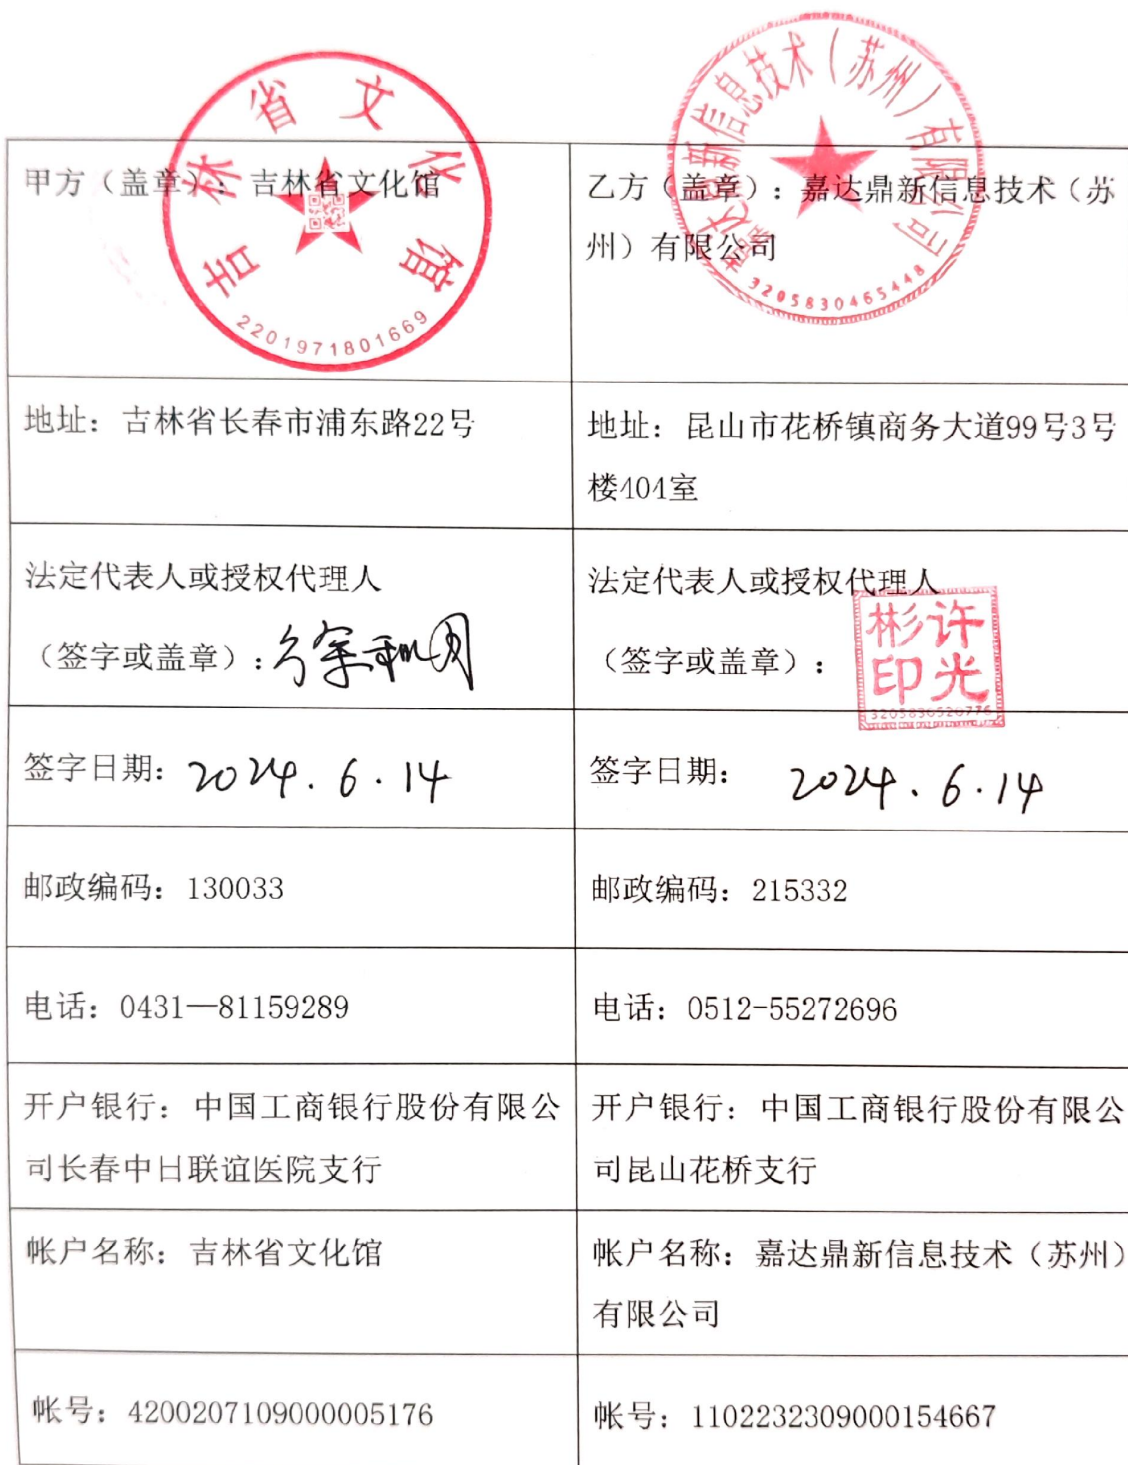 吉林省文化馆
2201971801669
嘉达鼎新信息技术（苏州）有限公司
3205830465448
甲方（盖章）：吉林省文化馆
乙方（盖章）：嘉达鼎新信息技术（苏
州）有限公司
地址：吉林省长春市浦东路22号
地址：昆山市花桥镇商务大道99号3号
楼404室
法定代表人或授权代理人
（签字或盖章）:
法定代表人或授权代理人
（签字或盖章）:
许光
彬印
签字日期：2024.6.14
签字日期： 2024.6.14
邮政编码：130033
邮政编码：215332
电话：0431—81159289
电话：0512-55272696
开户银行：中国工商银行股份有限公
司长春中日联谊医院支行
开户银行：中国工商银行股份有限公
司昆山花桥支行
帐户名称：吉林省文化馆
帐户名称：嘉达鼎新信息技术（苏州）
有限公司
帐号：4200207109000005176
帐号：1102232309000154667